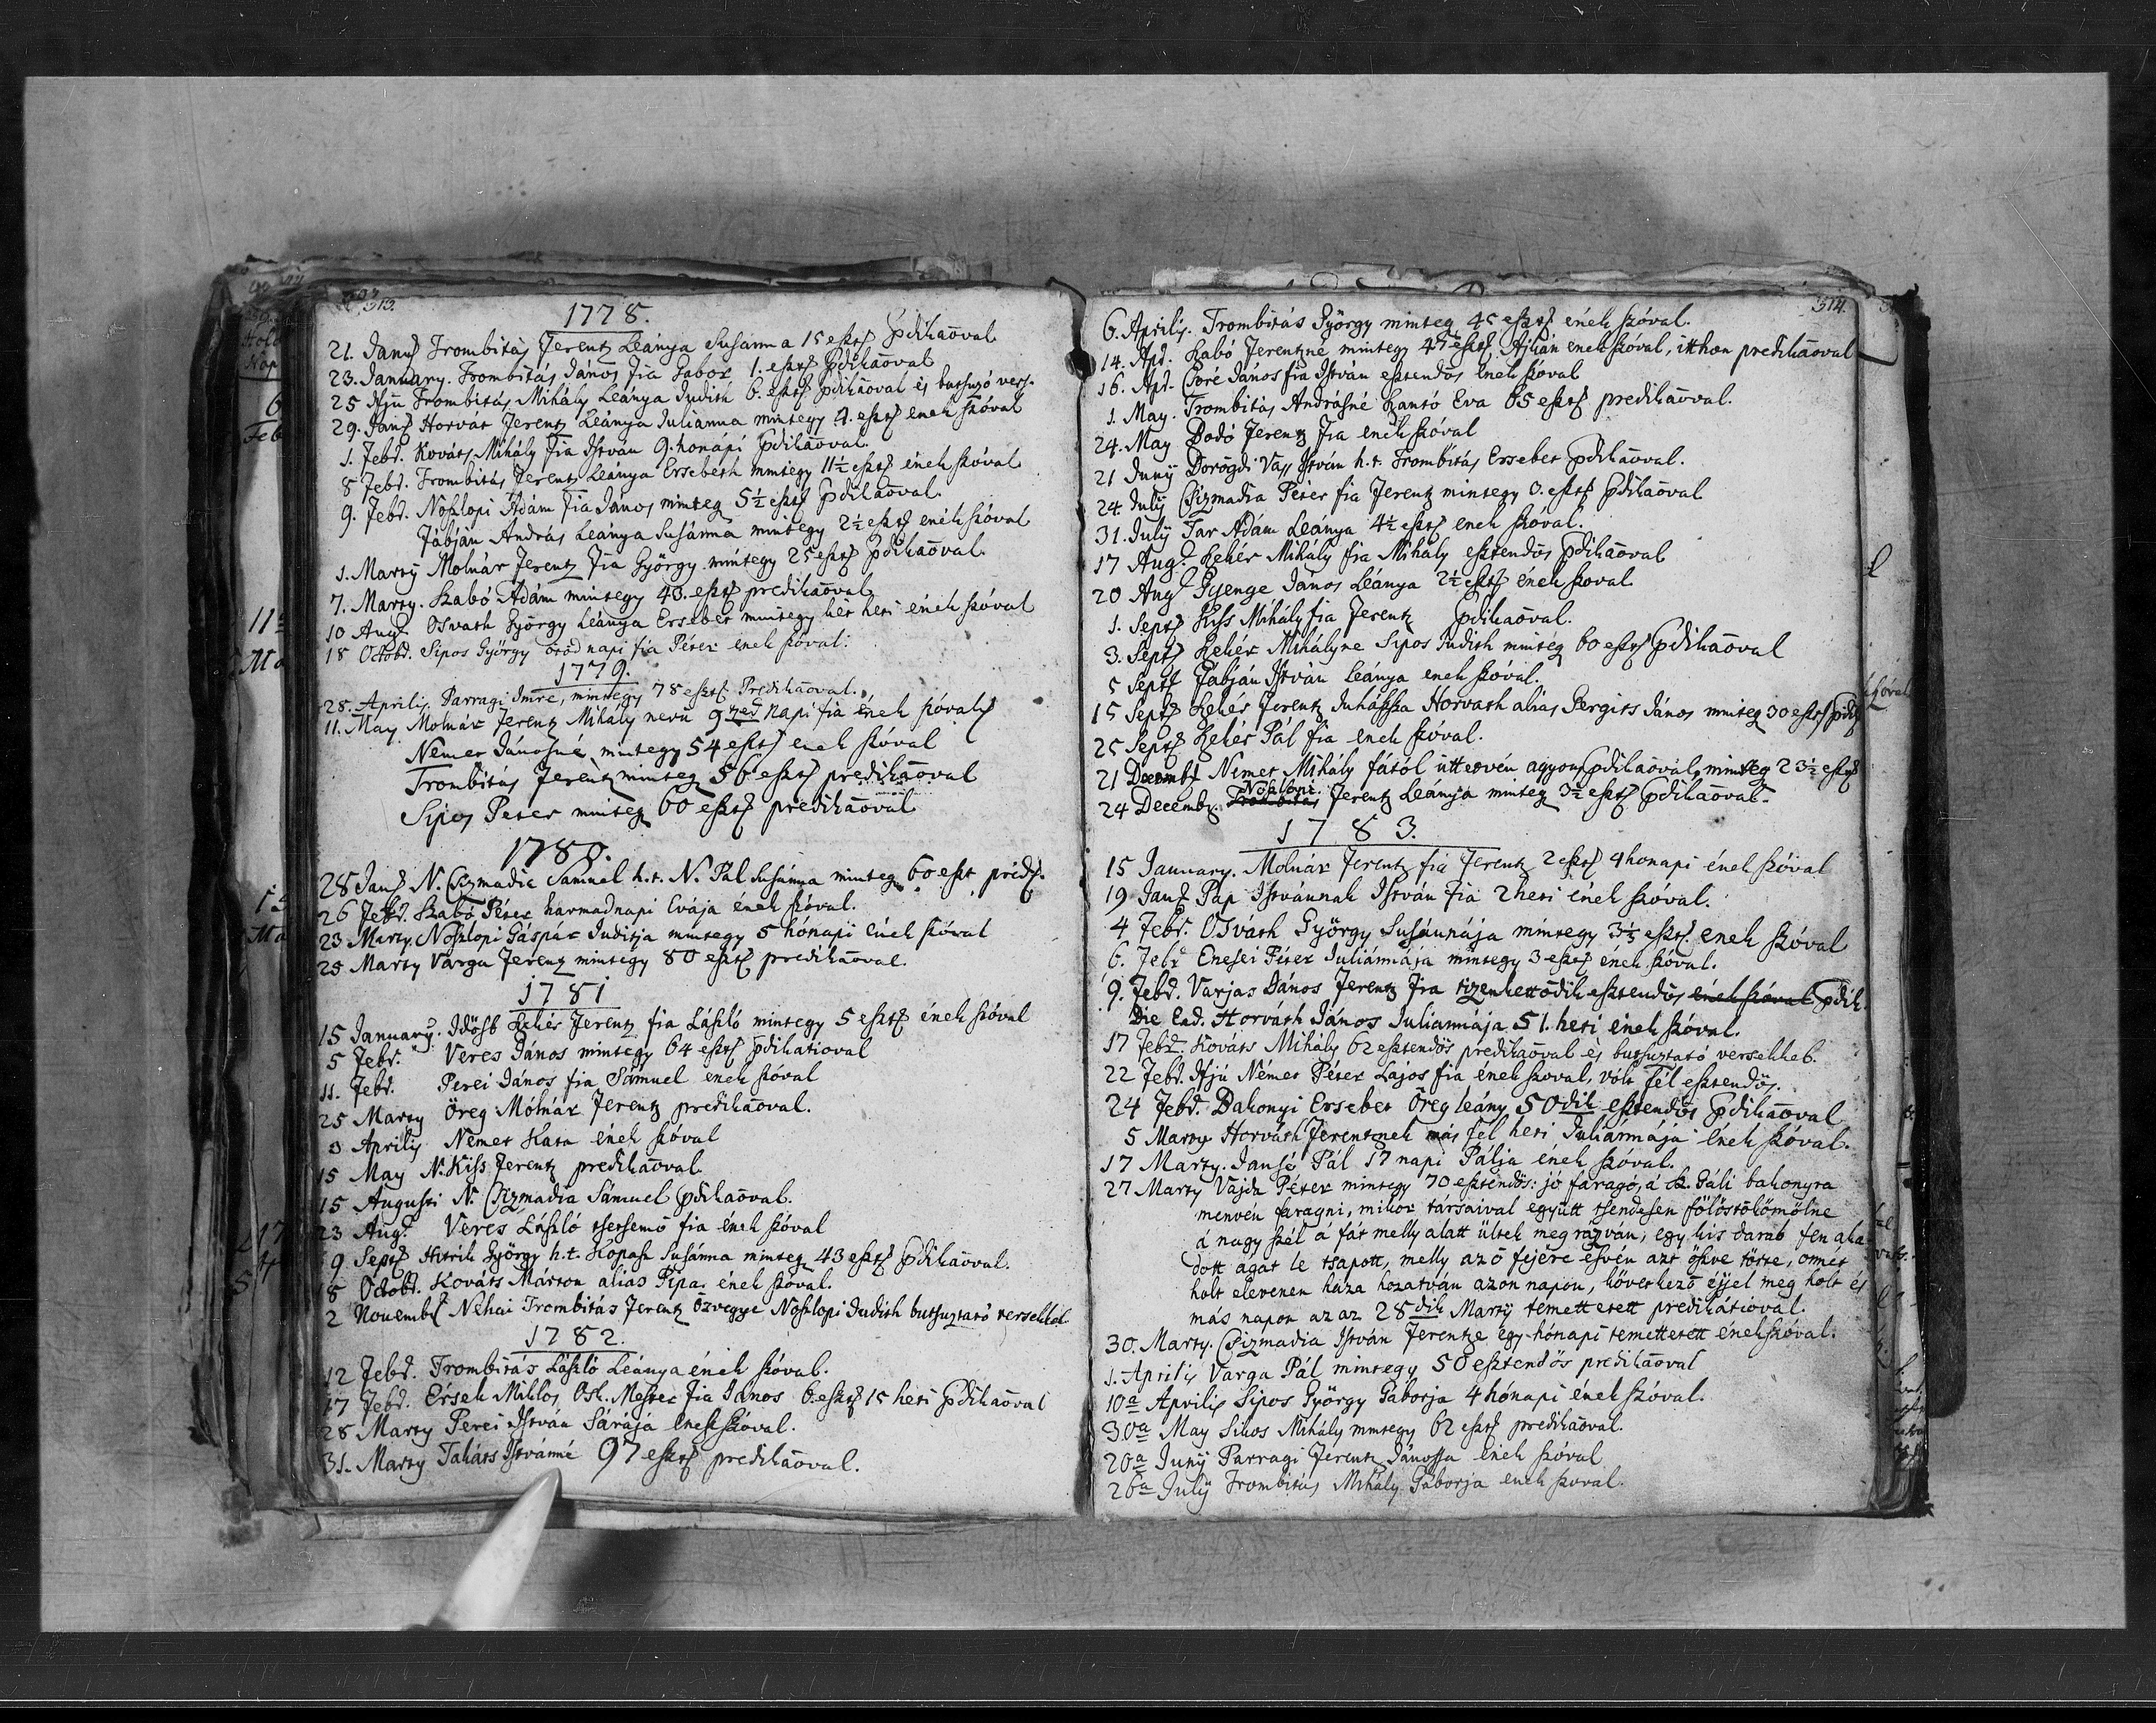 313.
1778.
21. Janu Trombitás Ferentz Leánya Susánna 15 eszt Pdikaōval
23. January. Trombitás János fia Gabor 1. eszt Pdikaōval
25 Ifju Trombitás Mihály Leánya Judith 6. eszt Pdikaōval és butsuzó vers.
29. Janu Horvát Ferentz Leánya Julianna mintegy 4. eszt enek szóval
1. Febr. Kováts Mihály fia István 9. honapi Pdikaōval.
8 Febr. Trombitás Ferentz Leánya Ersebeth mintegy 11½ eszt ének szóval
9. Febr. Noszlopi Ádám fia János minteg 5½ eszt Pdikaōval.
Fábján András Leánya Susánna mintegy 2½ eszt enek szóval
1. Marty Molnár Ferentz fia György mintegy 25 eszt Pdikaōval.
7. Marty. Szabó Ádám mintegy 43. eszt predikaōval.
10 Aug. Osvath György Leánya Ersebet mintegy két heti ének szóval
18 Octob. Sipos György ötöd napi fia Péter enek szóval.
1779.
28. Aprilis. Parragi Imre, mintegy 78 eszt Predikaōval.
11. May Molnár Ferentz Mihály nevü 9zed napi fia ének szóval
Nemes Jánosné mintegy 54 eszt enek szóval
Trombitás Ferentz minteg 56 eszt predikaōval
Sipos Peter minteg 60 eszt predikaōval
1780.
28 Janu N. Csizmadia Samuel h. t. N. Pal Susánna minteg 60 eszt préd.
26 Febr. Szabó Péter harmadnapi Evája enek szóval.
23 Marty. Noszlopi Gáspár Juditja mintegy 5 hónapi ének szóval
25 Marty Varga Ferentz mintegy 80 eszt predikaōval.
1781
15 January. Idösb Fehér Ferentz fia László mintegy 5 eszt ének szóval
5 Febr. Veres János mintegy 64 eszt Pdikatioval
11. Febr. Perei János fia Sámuel enek szóval
25 Marty Öreg Mólnár Ferentz predikaōval.
3 Aprilis Nemet Kata ének szóval
15 May N. Kiss Ferentz predikaōval
15 Augusti N. Csizmadia Sámuel Pdikaōval.
23 Aug. Veres László tsetsemö fia ének szóval
9 Sept Hetrik György h. t. Kopasz Susánna minteg 43 eszt Pdikaōval.
18 Octob. Kováts Márton alias Pipa. ének szóval.
2 Novemb Néhai Trombitás Ferentz özvegye Noszlopi Judith butsuztató versekkel
1782.
12 Febr. Trombitás László Leánya ének szóval.
17 Febr. Érsek Miklos Osk. Mester fia János 6. eszt 15 heti Pdikaōval
28 Marty Perei István Sárája ének szóval.
31. Marty Takáts Istvánné 97 eszt predikaōval.
314.
6. Aprilis. Trombitás György minteg 45 eszt ének szóval.
14. Apr. Szabó Ferentzné mintegy 47 eszt. Ajkán enek szóval, itthon predikaōval
16. Apr. Coré János fia István esztendös ének szóval
1. May. Trombitás Andrásné Szántó Eva 65 eszt predikaōval.
24. May Dodó Ferentz fia enek szóval
21 Juny Dorögdi Vass István h. t. Trombitás Ersebet Pdikaōval.
24 July Csizmadia Péter fia Ferentz mintegy 3. eszt Pdikaōval
31. July Tar Ádám Leánya 4½ eszt enek szóval.
17 Aug. Fehér Mihály fia Mihály esztendös Pdikaōval
20 Aug Gyenge János Leánya 2½ eszt ének szoval
1. Sept Kiss Mihály fia Ferentz Pdikaōval.
3. Sept Fehér Mihályne Sipos Judith minteg 60 eszt Pdikaōval
5 Sept Fábján István Leánya enek szóval.
15 Sept Fehér Ferentz Juhássza Horvath alias Gergits János minteg 30 eszt Pdik
25 Sept Fehér Pál fia enek szóval.
21 Decemb Nemet Mihály fától üttetvén agyon Pdikaōval, minteg 23½ eszt
24 Decemb. Trombitás Noszlopi Ferentz Leánya minteg 3½ eszt Pdikaōval.
1783.
15 January. Molnár Ferentz fia Ferentz 2 eszt 4 honapi ének szóval
19 Janu Pap Istvánnak István fia 2 heti ének szóval.
4 Febr. Osváth György Susánnája mintegy 3⅓ eszt. enek szóval
6. Febr Enesei Péter Juliánnája mintegy 3 eszt ének szóval.
9. Febr. Varjas János Ferentz fia tizenkettödik esztendös ének szóval Pdik.
Die Ead. Horváth János Juliannája 51. heti ének szóval.
17 Febr. Kováts Mihály 62 esztendös predikaōval és butsuztató versekkel.
22 Febr. Ifjú Németh Péter Lajos fia ének szoval, vólt fél esztendös.
24 Febr. Bakonyi Ersebet Öreg leány 50dik esztendös Pdikaōval
5 Marty Horváth Ferentznek más fél heti Juliánnája ének szóval.
17 Marty. Jansó Pál 17 napi Pálja ének szóval.
27 Marty Vajda Péter mintegy 70 esztendös: jó faragó, á Sz. Gáli bakonyra
menvén faragni, mikor társaival együtt tsendesen fölöstökömölne
á nagy szél á fát melly alatt ültek meg rázván, egy kis darab fen aka
dott ágát le tsapott, melly az ö fejére esvén azt öszve törte, onnét
holt elevenen háza hozatván azon napon, következö éjjel meg holt és
más napon az az 28dik Marty temettetett predikátioval.
30. Marty. Csizmadia István Ferentze egy hónapi temettetett ének szóval.
1. Aprilis Varga Pál mintegy 50 esztendös predikaōval
10a Aprilis Sipos György Gáborja 4 hónapi ének szóval.
30a May Sikos Mihály mintegy 62 eszt predikaōval.
20a Juny Parragi Ferentz Jánossa ének szóval
26a July Trombitás Mihály Gáborja enek szoval.